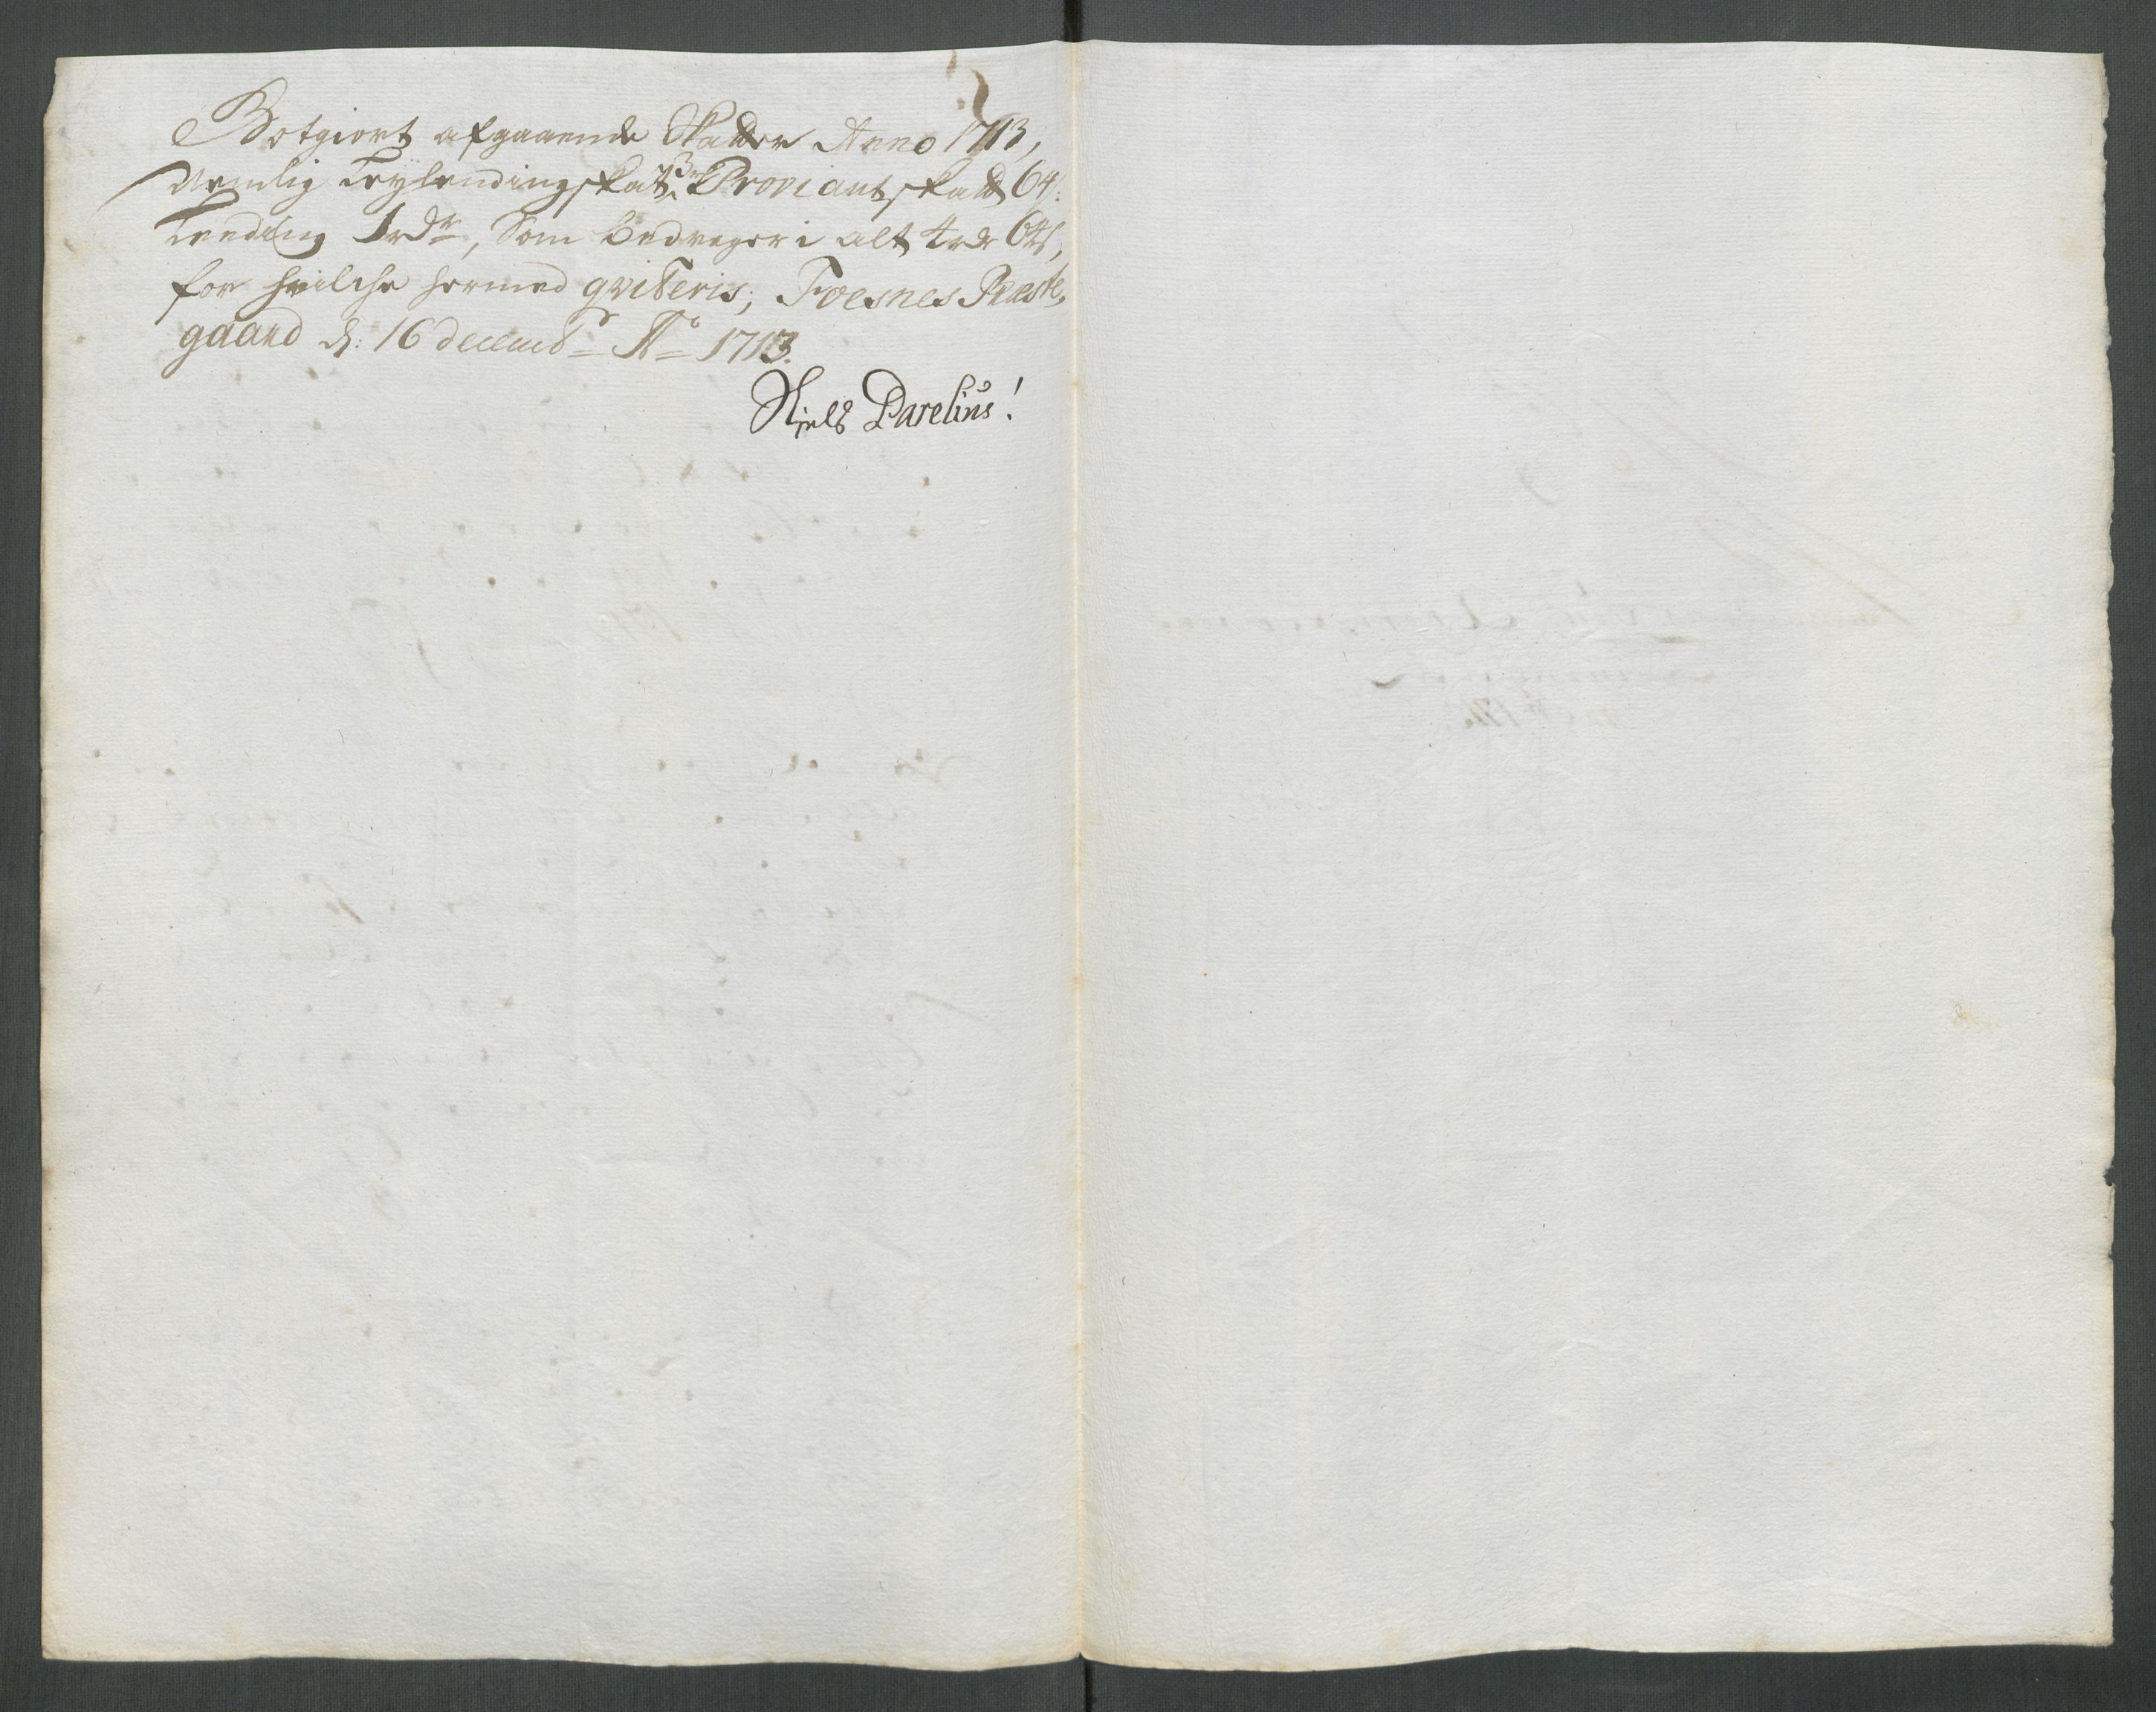 Botgiort afgaaende Skatter Anno 1713,
Nemlig Leylendingskat 3 Proviantskatt 64s:
Lending 1 rdr, Som bedrager i alt 4 rdr 64s,
for hvilche hermed qviteris; Foesnes Præste,
gaard d: 16 decemb= Ao= 1713.
Niels Parelius!